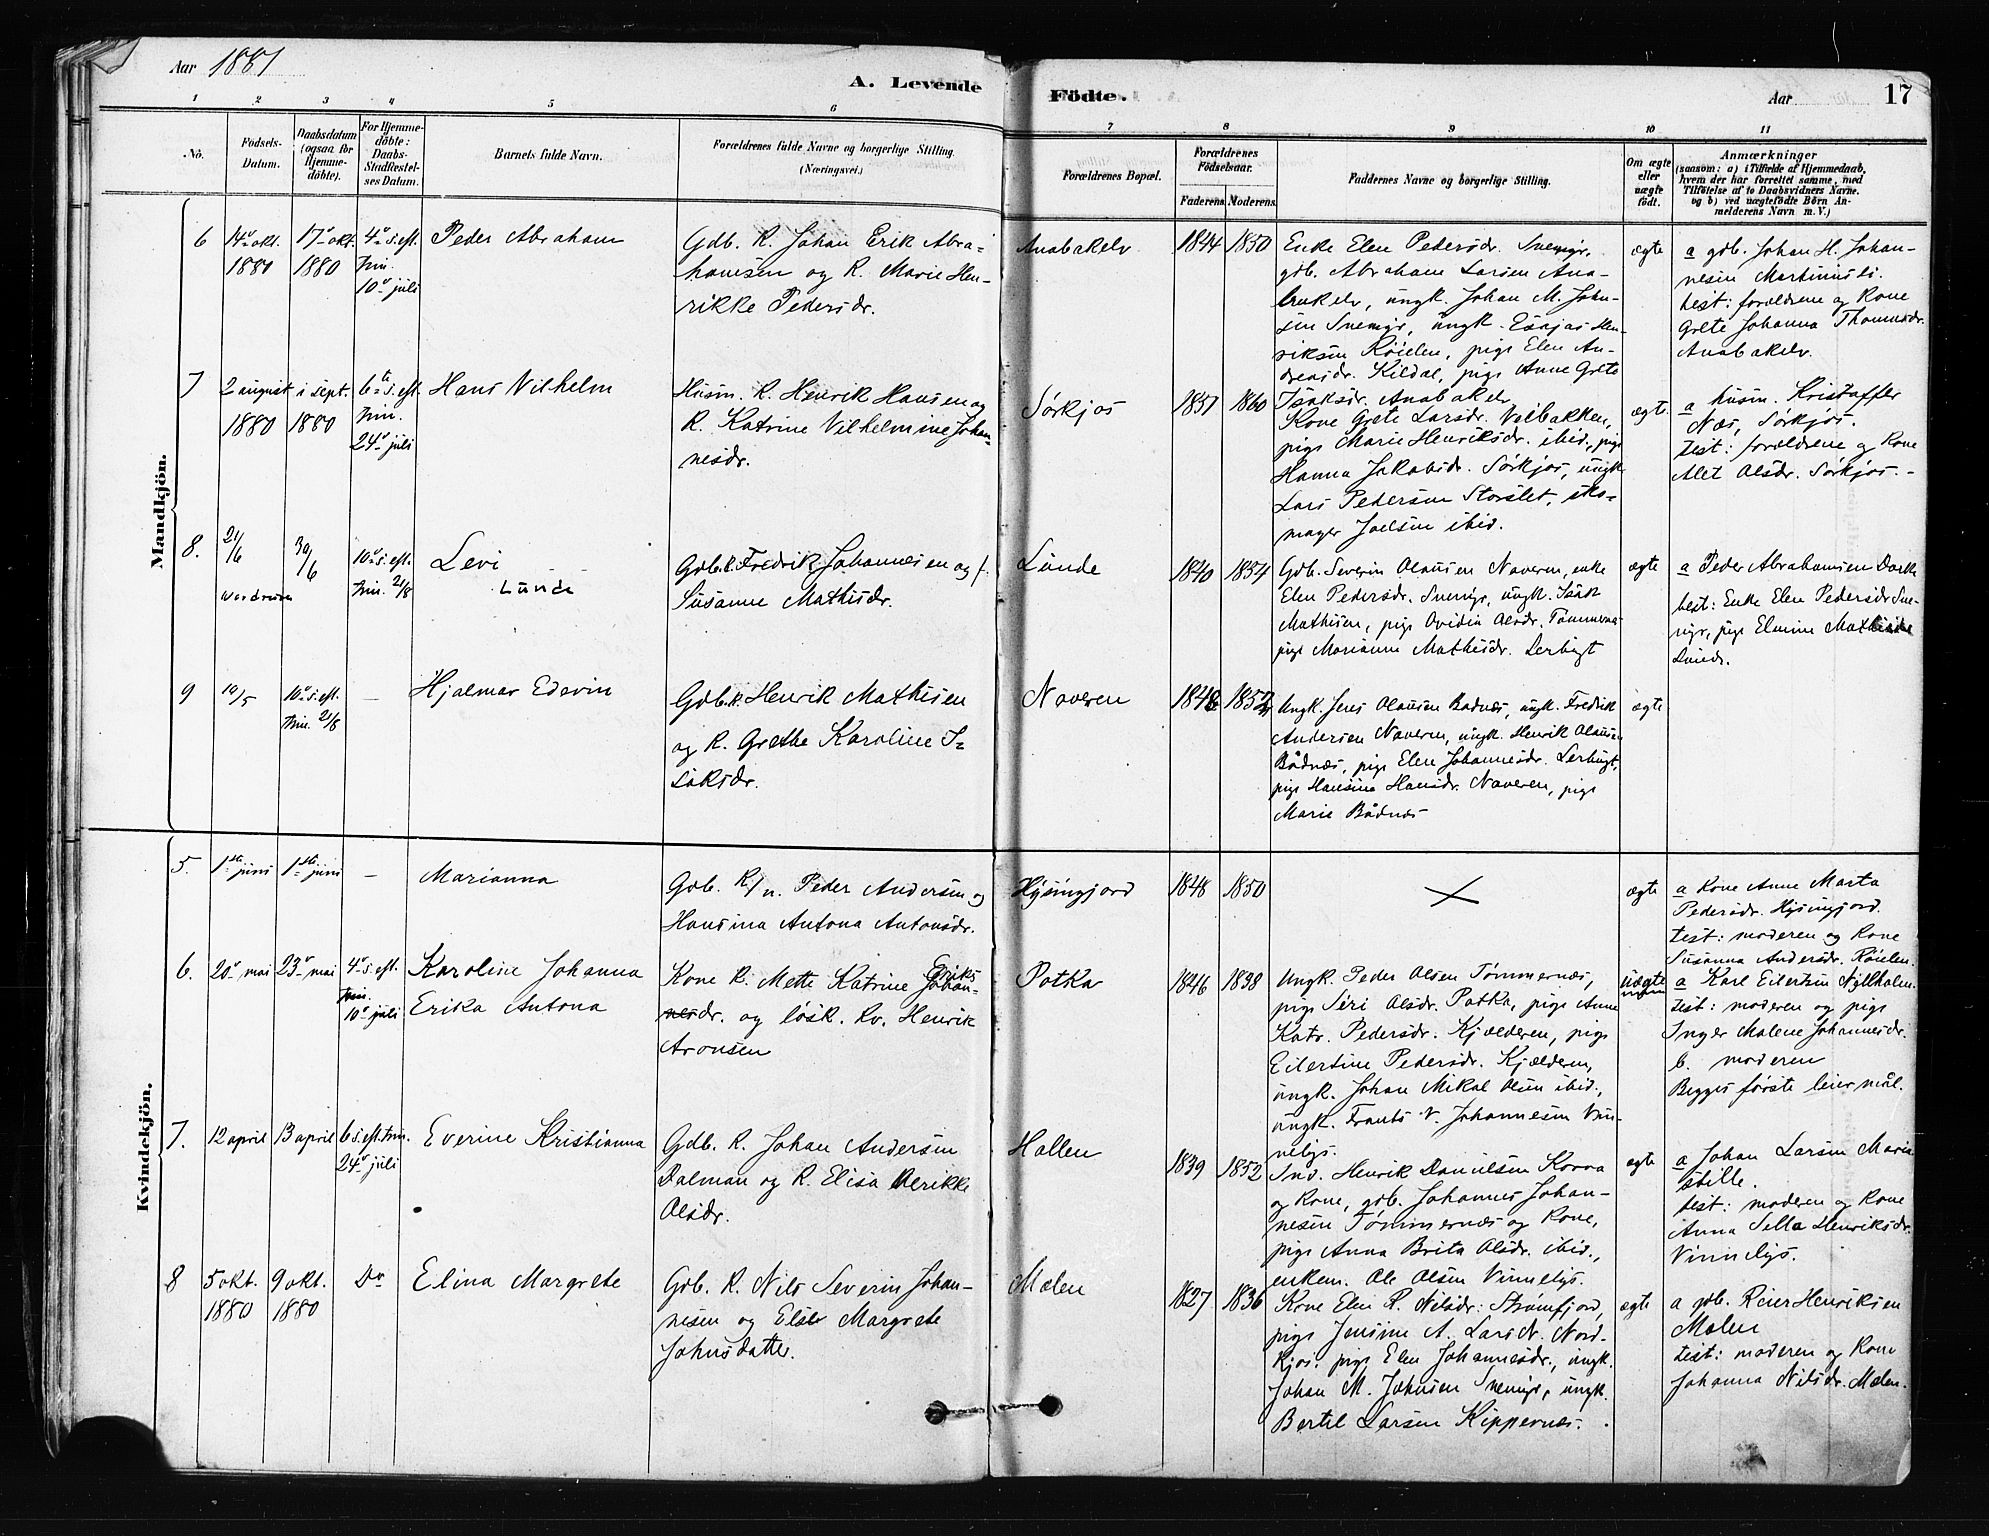 Aar 1881
A. Levende Födte.
Aar 17
1 2 3 4 5 6 7 8 9 10 11
No.
Födsels-
Datum.
Daabsdatum
(ogsaa for
Hjemme-
döbte).
For Hjemme-
döbte:
Daabs-
Stadfæstel-
ses Datum.
Barnets fulde Navn.
Forældrenes fulde Navne og borgerlige Stilling.
(Næringsvei.)
Forældrenes Bopæl.
Forældrenes
Födselsaar.
Faderens. Moderens.
Faddernes Navne og borgerlige Stilling.
Om ægte
eller
uægte
födt.
Anmærkninger
(saasom: a) i Tilfælde af Hjemmedaab,
hvem der har forrettet samme, med
Tilföielse af to Daabsvidners Navne.
og b) ved uægtefödte Börn An-
melderens Navn m. V.)
Mandkjön.
6
14de okt.
1880
17de okt.
1880
4de s. eft.
Trin.
10de juli
Peder Abraham
Gdb. K. Johan Erik Abra-
hamsen og K. Marie Hen-
rikke Pedersdr.
Anabakelv
1844 1850
Enke Elen Pedersdr. Snemyr,
gdb. Abraham Larsen Ana-
bakelv, ungk. Johan M. John-
sen Snemyr, ungk. Esajas Hen-
riksen Röielen, pige Elen An-
dersdr. Kildal, pige Anne Grete
Isaksdr. Anabakelv
ægte
a gdb. Johan H. Johan-
nesen
test: forældrene og Kone
Grete Johanna Thomasdr.
Anabakelv.
7
2 august
1880
i sept.
1880
6te s. eft.
Trin.
24de juli
Hans Vilhelm
Husm. K. Henrik Hansen og
K. Katrine Vilhelmine Johan-
nesdr.
Sørkjos
1857 1860
Kone Grete Larsdr. Veibakken,
pige Marie Henriksdr. ibid., pige
Hanna Jakobsdr. Sørkjos, ungk.
Lars Pedersen Storslet, sko-
mager Joelsen ibid.
ægte.
a husm. Kristoffer
Næs, Sørkjos.
test: forældrene og Kone
Alet Olsdr. Sørkjos.
8.
21/6
30/6
10de s. eft.
Trin. 21/8
Levi
Lunde
Gdb. K. Fredrik Johannesen og
Susanne Mathisdr.
Lunde
1840 1854
Gdb. Severin Olausen Naveren, enke
Elen Pedersdr. Snemyr, ungk. Isak
Mathisen, pige Ovidia Olsdr. Tømmernæs
pige Marianne Mathisdr. Lerbugt
ægte
a Peder Abrahamsen
test: Enke Elen Pedersdr Sne-
myr, pige Elenine Mathisdr
Lunde.
9
10/5
10de s. eft.
Trin. 21/8
—
Hjalmar Edevin
Gdb. K. Henrik Mathisen
og K. Grethe Karoline I-
saksdr.
Naveren
Ungk. Jens Olausen Badnæs, ungk. Fredrik
Andersen Naveren, ungk. Henrik Olausen
Bådnæs, pige Elen Johannesdr. Lerbugt,
pige Hansine Hansdr. Naveren, pige
Marie Bådnæs
ægte
Kvindekjön.
5.
1ste juni
1ste juni
—
Marianna
Gdb. K/n. Peder Andersen og
Hansina Antona Antonsdr.
Hysingjord
1848 1850
ægte
a Kone Anne Marta
Pedersdr. Hysingjord.
test: moderen og Kone
Susanna Andersdr. Röielen.
6.
20de mai
23de mai
4de s. eft.
Trin.
10de juli
Karoline Johanna
Erika Antona
Kone K. Mette Katrine Eriks
Johan-
nesdr. og løsk. Kv. Henrik
Aronsen
Potka
1846 1838
Ungk. Peder Olsen Tømmernæs,
pige Siri Olsdr. Potka, pige Anne
Katr. Pedersdr. Kjælderen, pige
Eilertine Pedersdr. Kjælderen,
ungk. Johan Mikal Olsen ibid.,
ungk. Frants V. Johannesen Vin-
nelys.
uægte
a Karl Eilertsen Nyllholm
test: moderen og pige
Inger Malene Johannesdr.
b. moderen
Begges første leiermål.
7.
12 april
13 april
6 s. eft. Trin.
24de juli
Everine Kristianna
Gdb. K. Johan Andersen
Dalman og K. Elisa Ulrikke
Olsdr.
Hallen
1839 1852
Ind. Henrik Danielsen Korva
og Kone, gdb. Johannes Johan-
nesen Tømmernæs og Kone,
pige Anna Brita Olsdr. ibid.,
enkem. Ole Olsen Vinnelys.
ægte
a Johan Larsen Marie
stille.
test: moderen og Kone
Anna Sella Henriksdr.
Vinnelys.
8
5 okt.
1880
9 okt.
1880
Do
Elina Margrete
Gdb. K. Nils Severin Johan-
nesen og Else Margrete
Johnsdatter.
Molen
1827 1836
Kone Elen K. Nilsdr. Strømfjord,
pige Jensine A. Larsdr. Nord-
kjos, pige Elen Johannesdr., ungk.
Johan M. Johnsen Snemyr, ungk.
Bertel Larsen Kippernæs.
ægte
a gdb. Reier Henriksen
Molen
test: moderen og Kone
Johanna Nilsdr. Molen.